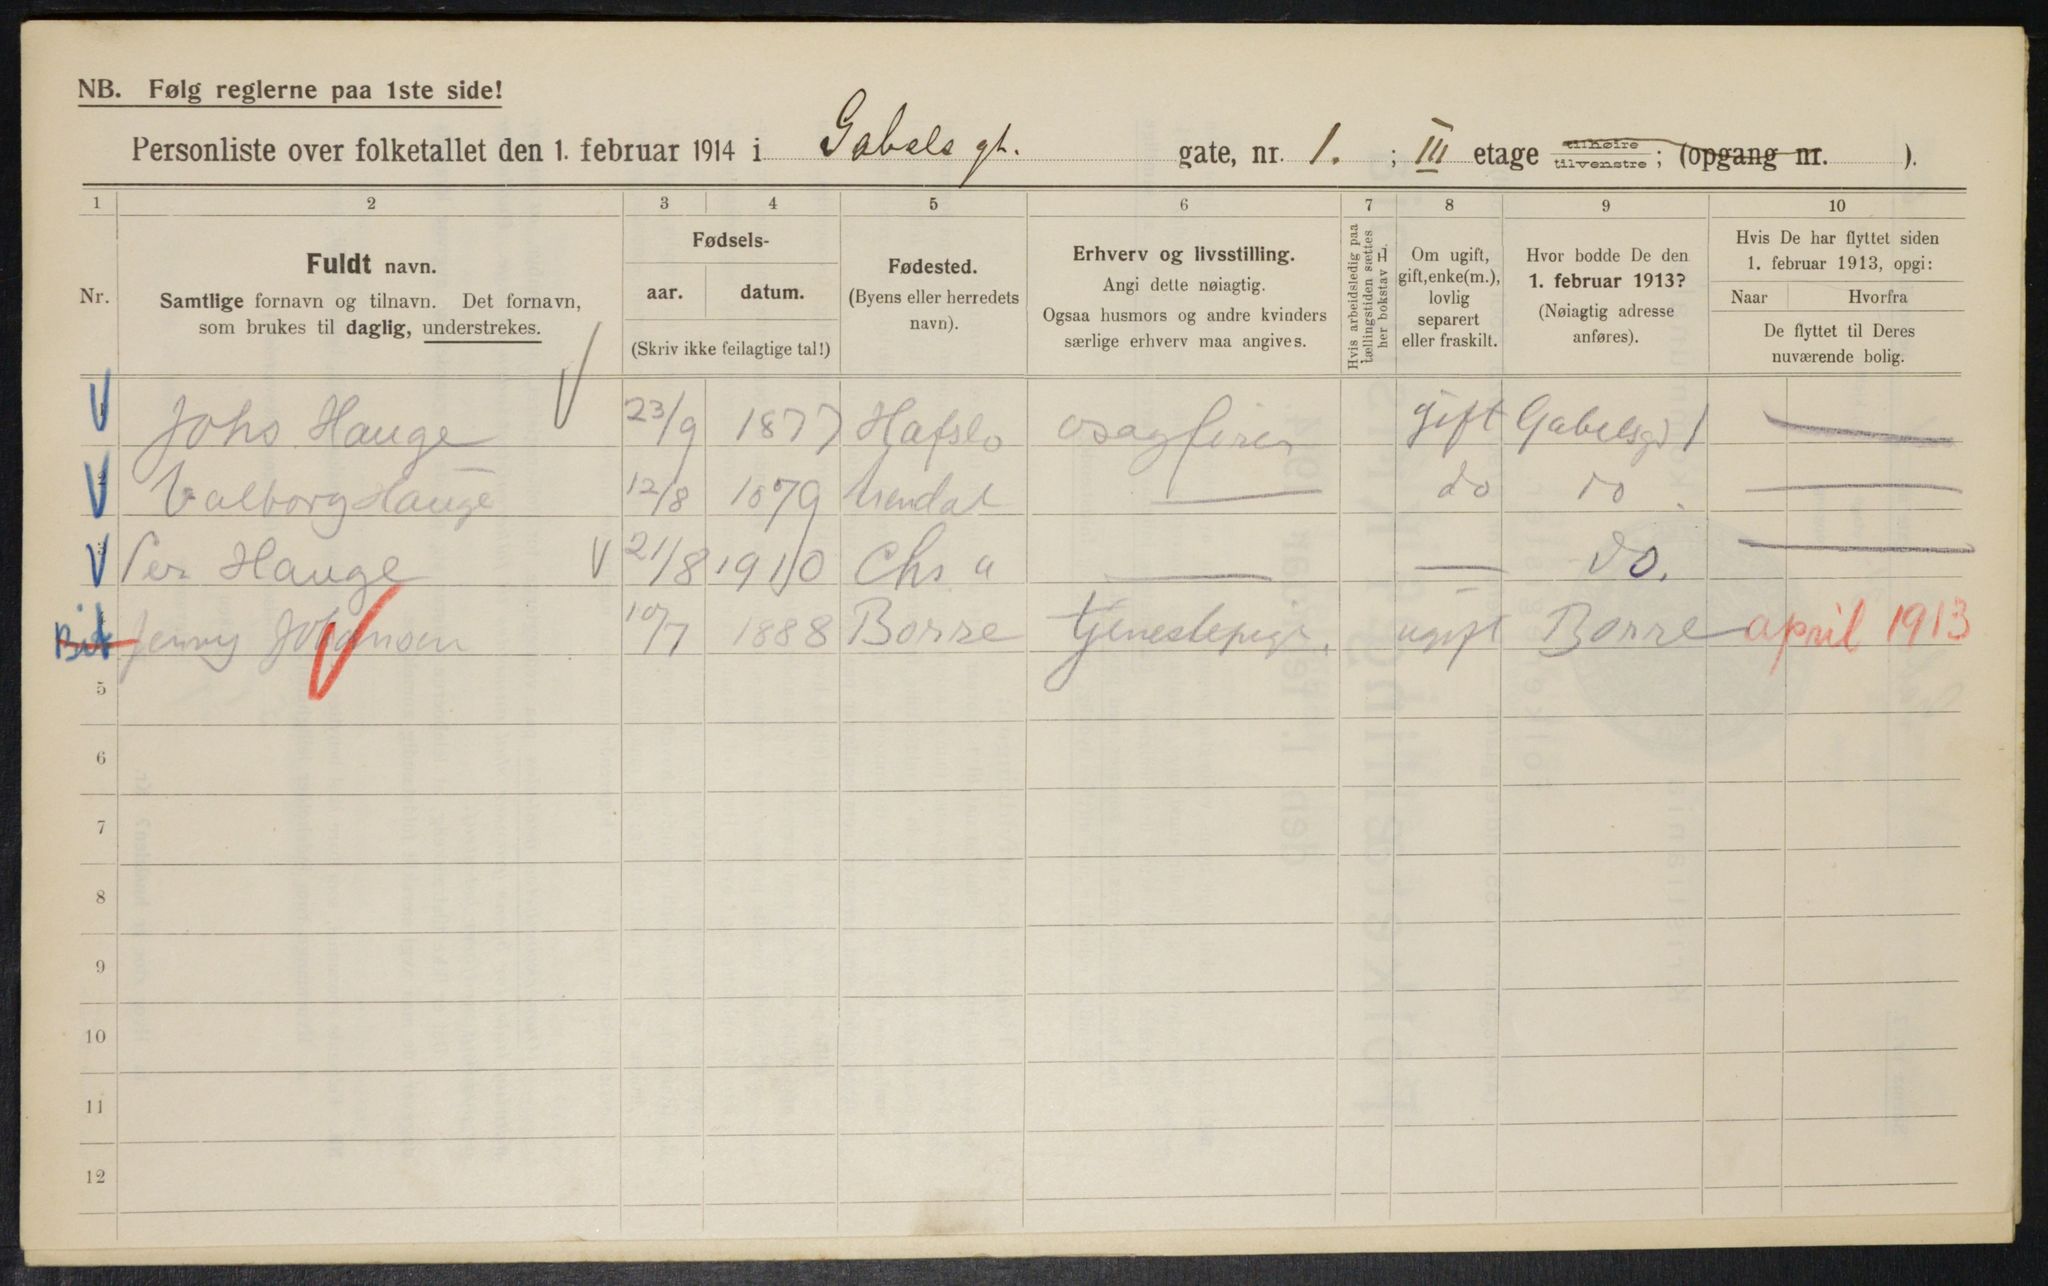 NB. Følg reglerne paa 1ste side!
Personliste over folketallet den 1. februar 1914 i Gabels gt. gate, nr. 1. ; III etage tilhøire tilvenstre ; (opgang nr. ).
1 2 3 4 5 6 7 8 9 10
Nr.
Fuldt navn.
Samtlige fornavn og tilnavn. Det fornavn,
som brukes til daglig, understrekes.
Fødsels-
aar. datum.
(Skriv ikke feilagtige tal!)
Fødested.
(Byens eller herredets
navn).
Erhverv og livsstilling.
Angi dette nøiagtig.
Ogsaa husmors og andre kvinders
særlige erhverv maa angives.
Hvis arbeidsledig paa
tællingstiden sættes
her bokstav L.
Om ugift,
gift, enke(m.),
lovlig
separert
eller fraskilt.
Hvor bodde De den
1. februar 1913?
(Nøiagtig adresse
anføres).
Hvis De har flyttet siden
1. februar 1913, opgi:
Naar Hvorfra
De flyttet til Deres
nuværende bolig.
1 Johs Hauge 23/9 1877 Hafslo gift Gabelsgt 1
2 Valborg Hauge 12/8 1879 do do
3 Per Hauge 21/8 1910 Chr a do.
Jenny Johansen 10/7 1888 Borre tjenestepige. ugift Borre april 1913
5
6
7
8
9
10
11
12